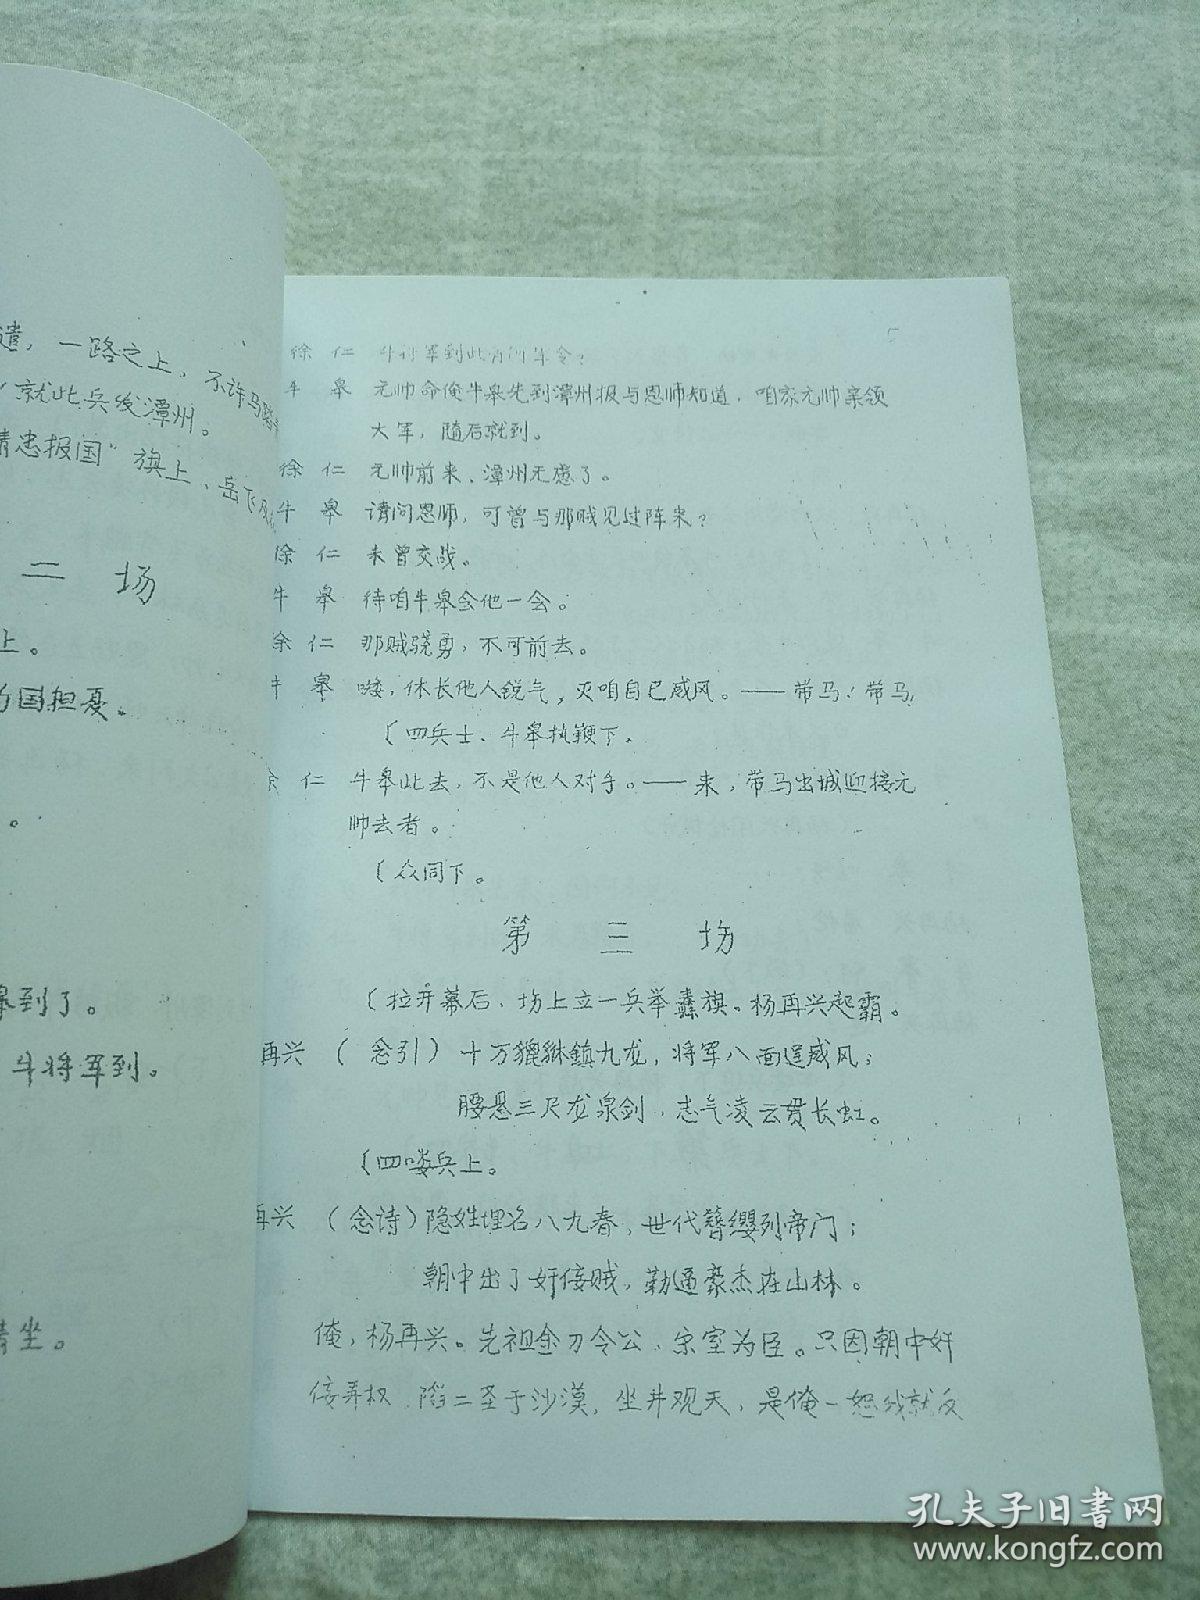 遣，一路之上，不许马踏
就此兵发潭州。
精忠报国"旗上，岳飞
二 场
上。
为国担忧。
。
皋到了。
牛将军到。
请坐。
5
徐 仁 牛将军到此有何军令？
牛 皋 元帅命俺牛皋先到潭州报与恩师知道，咱家元帅亲领
大军，随后就到。
徐 仁 元帅前来，潭州无虑了。
牛 皋 请问恩师，可曾与那贼见过阵来？
徐 仁 未曾交战。
牛 皋 待咱牛皋会他一会。
徐 仁 那贼骁勇，不可前去。
牛 皋 唛，休长他人锐气，灭咱自己威风。——带马！带马，
〔四兵士、牛皋执鞭下。
徐 仁 牛皋此去，不是他人对手。——来，带马出城迎接元
帅去者。
〔众同下。
第 三 场
〔拉开幕后，场上立一兵举纛旗。杨再兴起霸。
再兴 （念引）十万貔貅镇九龙，将军八面逞威风；
腰悬三尺龙泉剑，志气凌云贯长虹。
〔四喽兵上。
再兴 （念诗）隐姓埋名八九春，世代簪缨列帝门；
朝中出了奸佞贼，勒逼豪杰在山林。
俺，杨再兴。先祖金刀令公，宋室为臣。只因朝中奸
佞弄权，陷二圣于沙漠，坐井观天，是俺一怒我就反
孔夫子旧书网
www.kongfz.com